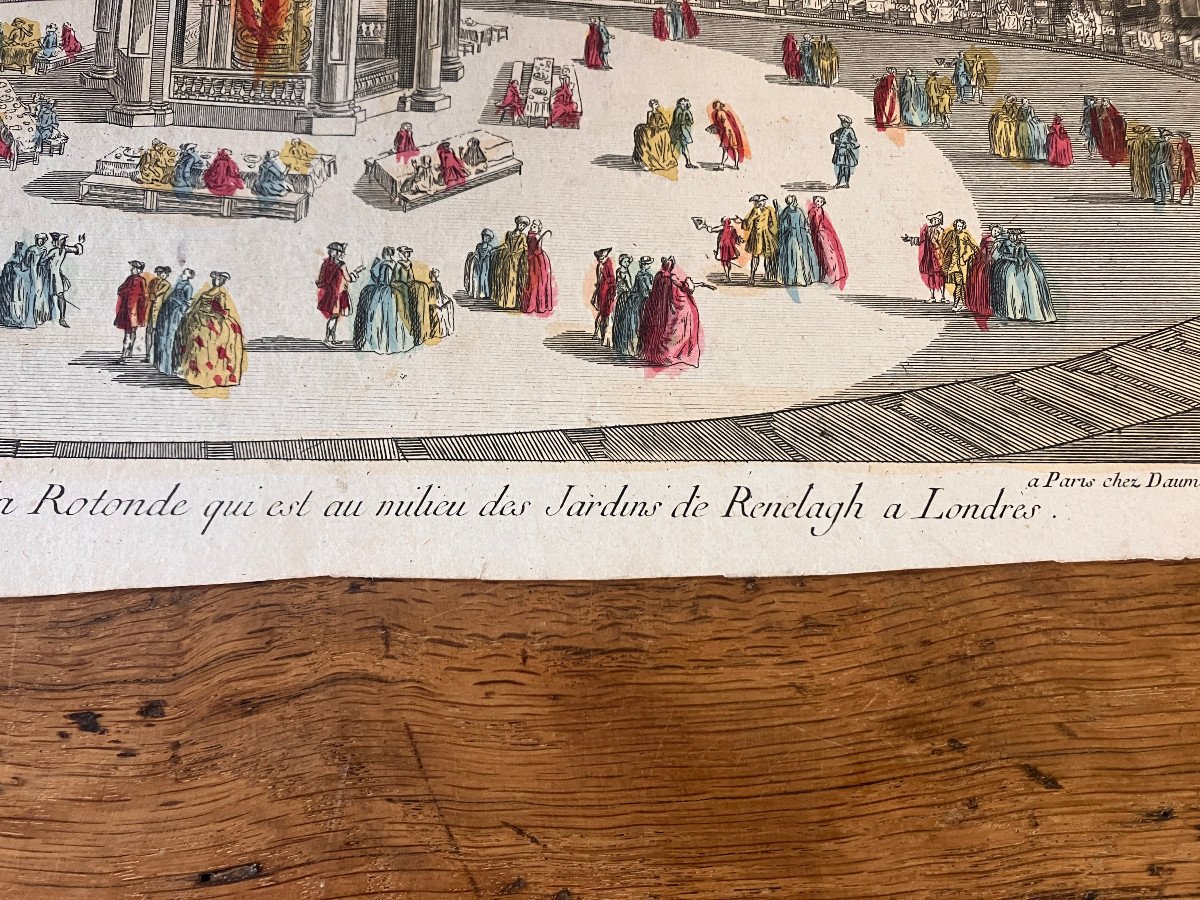 a Paris chez Daum
la Rotonde qui est au milieu des Jardins de Renelagh a Londres.